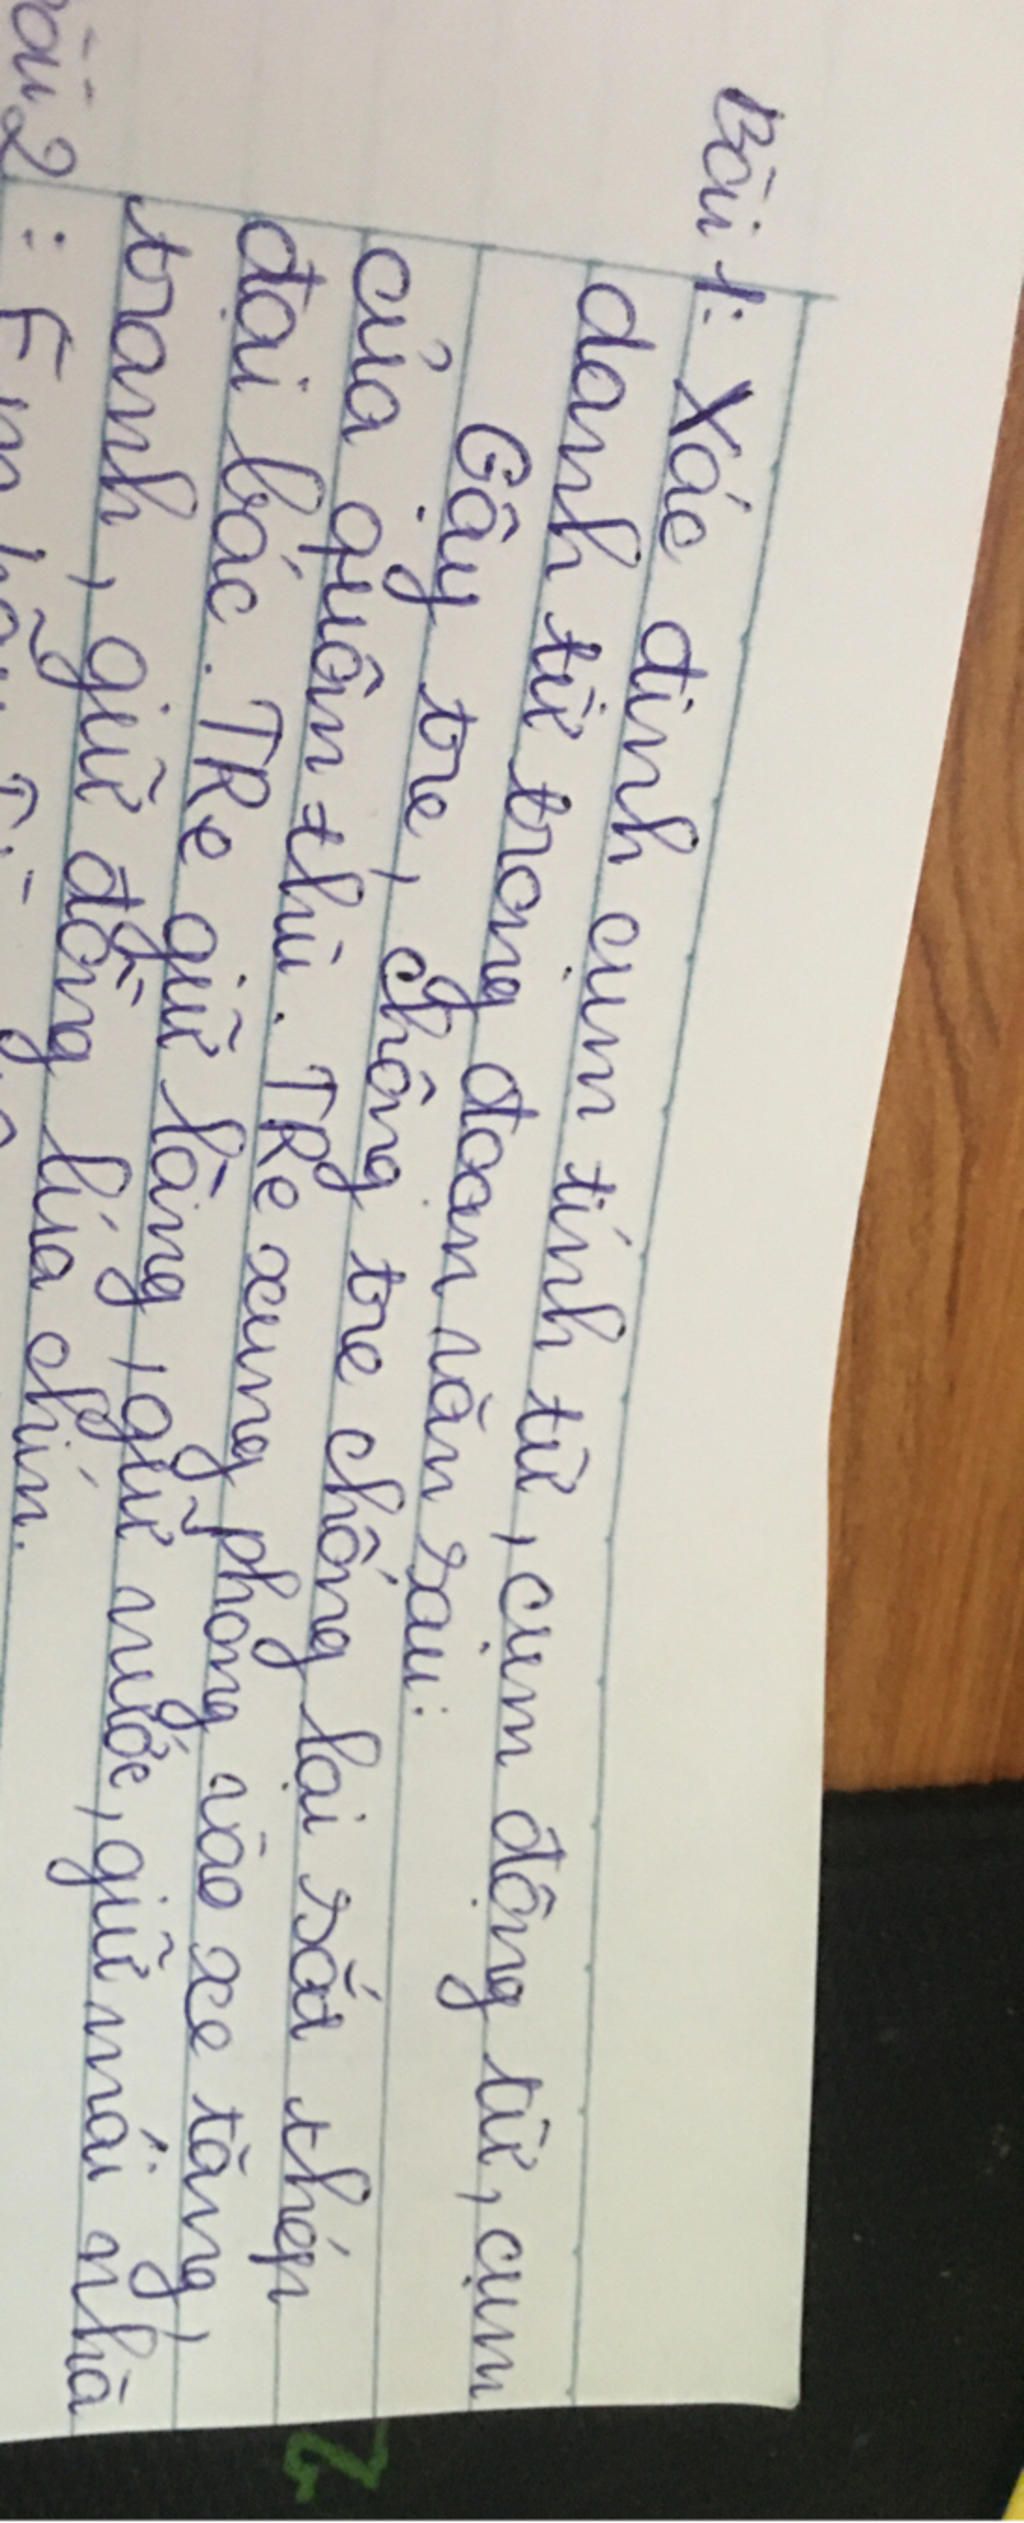 Bài 1: Xác định cụm tính từ, cụm động từ, cụm
danh từ trong đoạn văn sau:
Gậy tre, chông tre chống lại sắt thép
của quân thù. TRe xung phong vào xe tăng,
đại bác. TRe giữ làng, giữ nước, giữ mái nhà
tranh, giữ đồng lúa chín.
bài 2 : Em
2